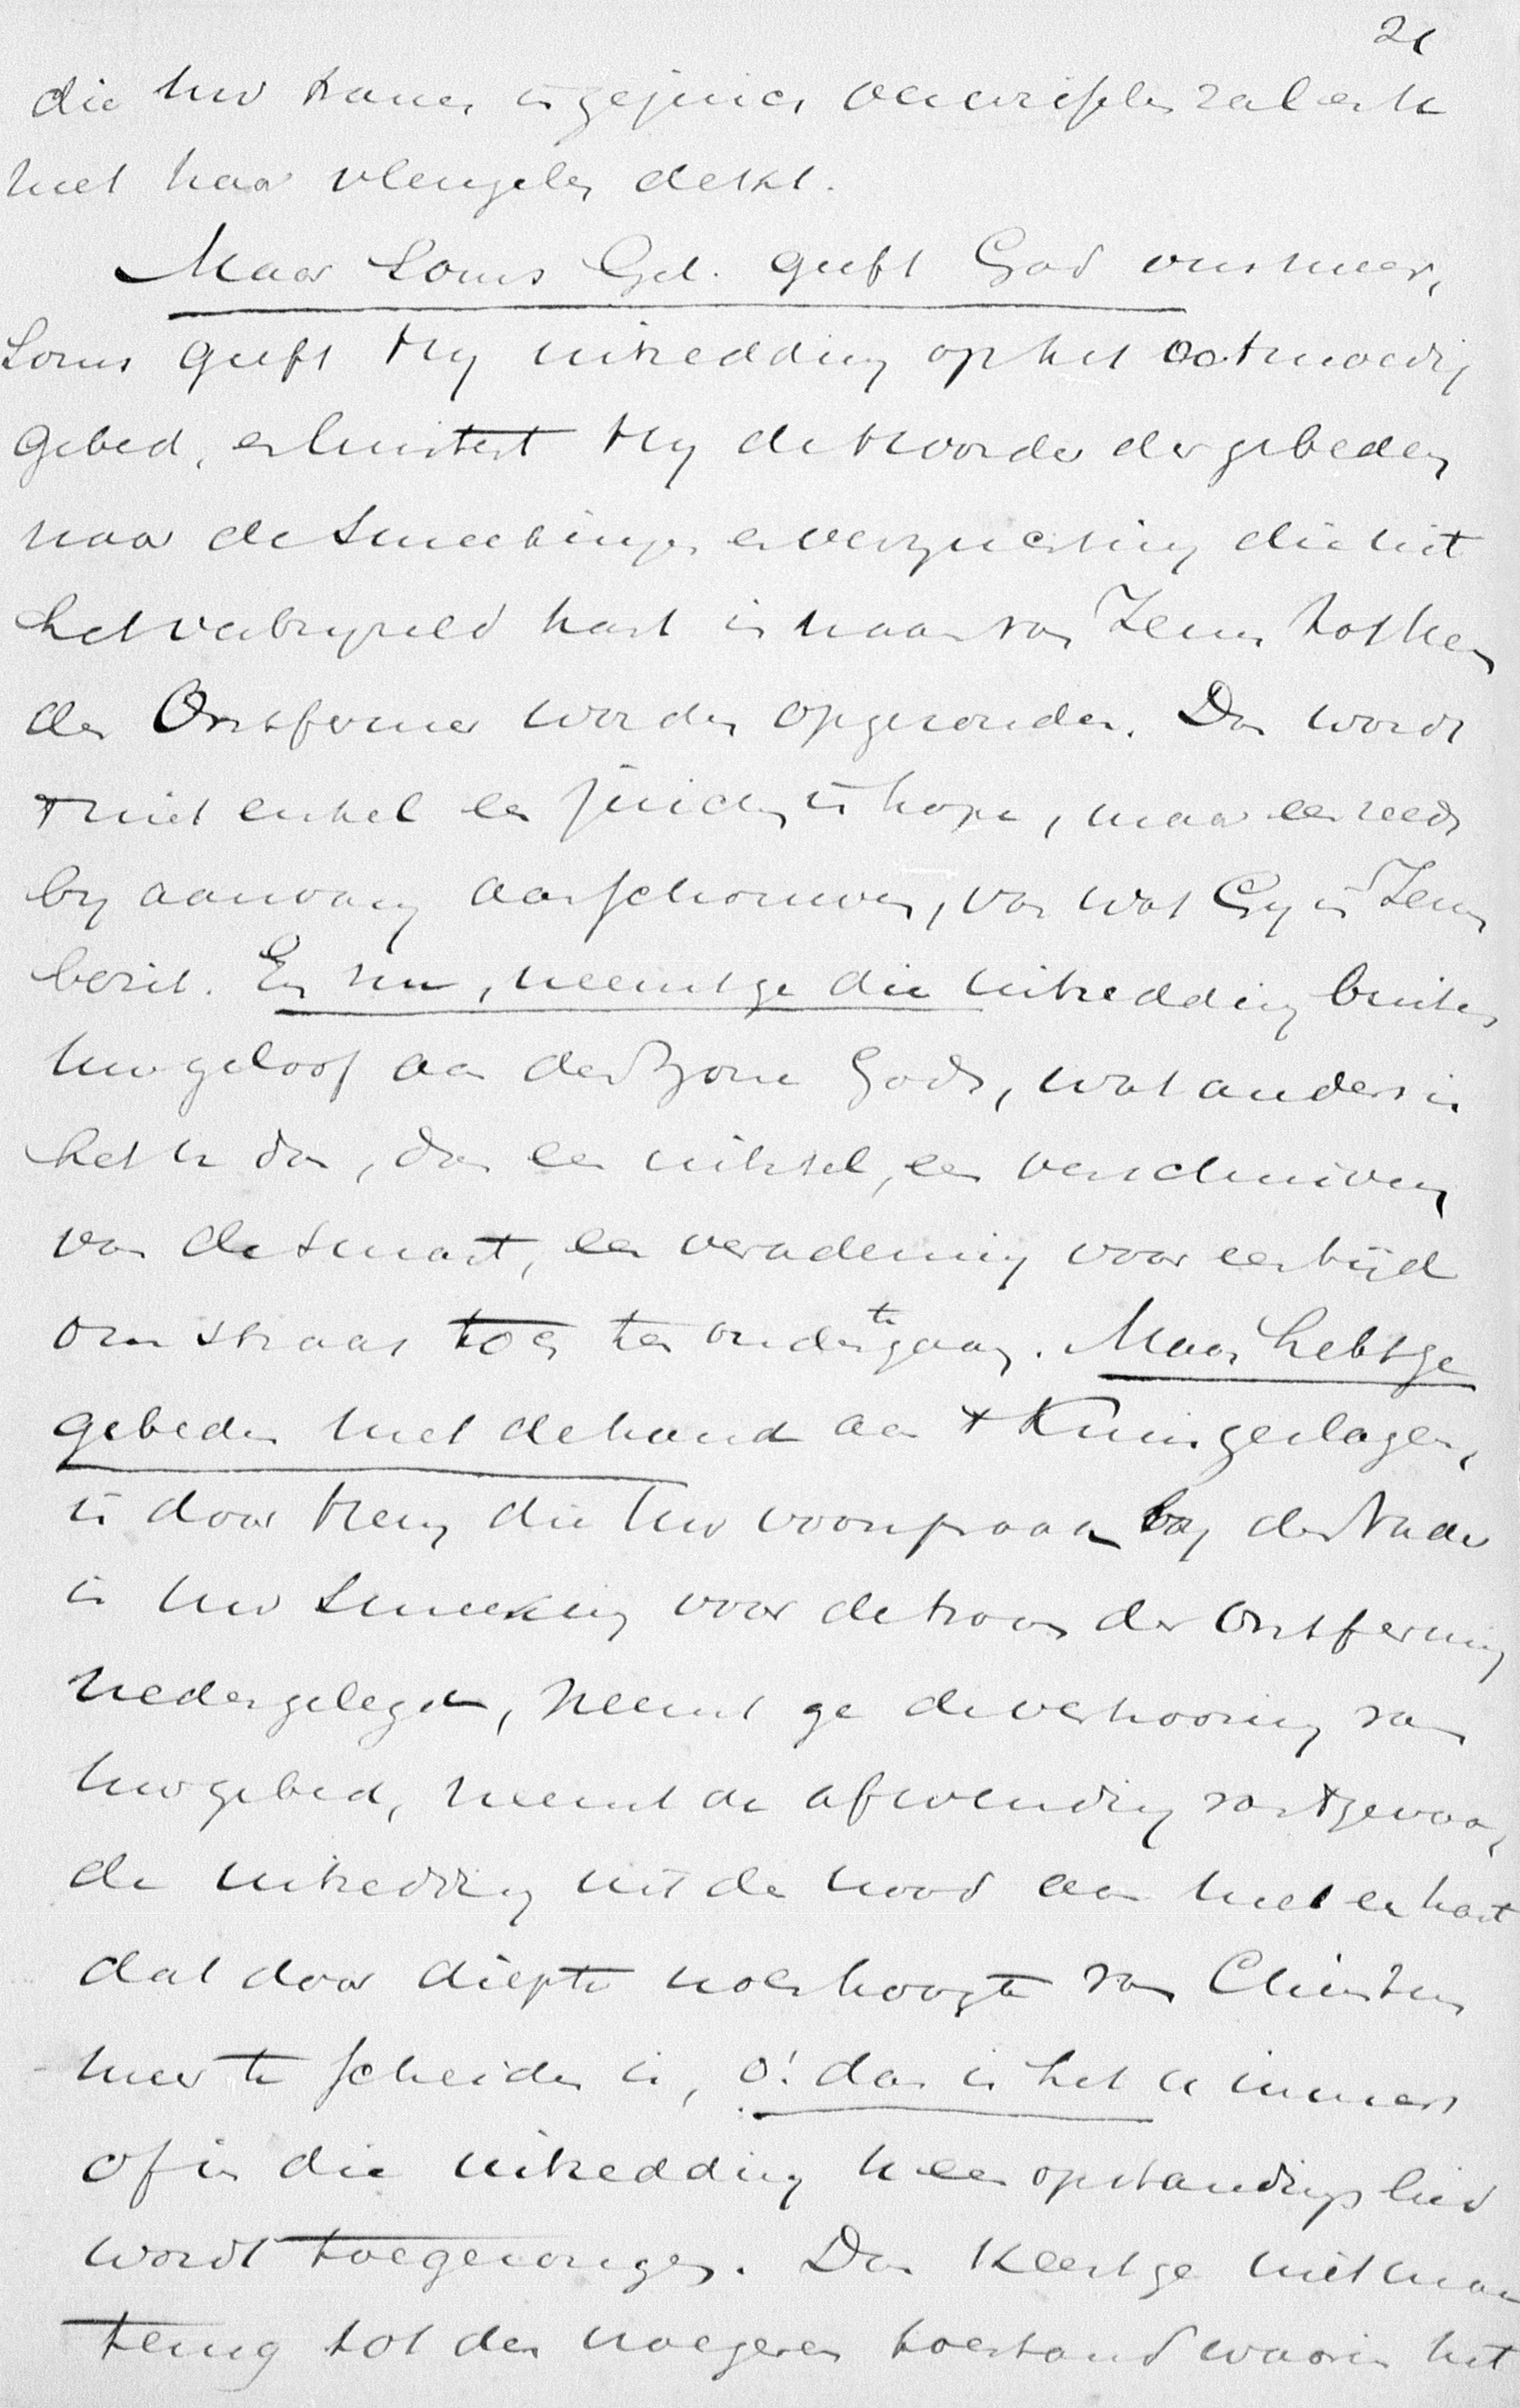 21
die uw tranen en
met haar vleugelen dekt.
Maar soms Gel. geeft God ons meer,
Soms geeft Hy uitredding op het ootmoedig
gebed, en luistert Hy de woorden der gebeden
naar de smeekingen en verzuchting die uit
het verbryzeld hart in naam van Jezus tot den
den Ontfermer worden opgezonden. Dan wordt
't niet enkel een juichen in hope, maar een reeds
by aanvang aanschouwen, van wat Gy in Jezus
bezit. En nu, neemt ge die uitredding buiten
uw geloof aan den Zone Gods, wat anders is
het u dan, dan een uitstel, een verschuiven
van de smart, een verademing voor een tijd
om straks toch ten onder te gaan. Maar hebt ge
gebeden met de hand aan 't Kruis geslagen,
is door Hem die Uw voorspraak by den Vader
is uw smeeking voor de troon der Ontferming
nedergelegd, neemt ge de verhooring van
uw gebed, neemt de afwending van 't gevaar,
de uitredding uit de nood aan met een hart
dat door diepte noch hoogte van Christus
meer te scheiden is, o! dan is het u immers
of in die uitredding u een opstandingslied
wordt toegezongen. Dan keert ge niet maar
terug tot den vroegeren toestand waarin het